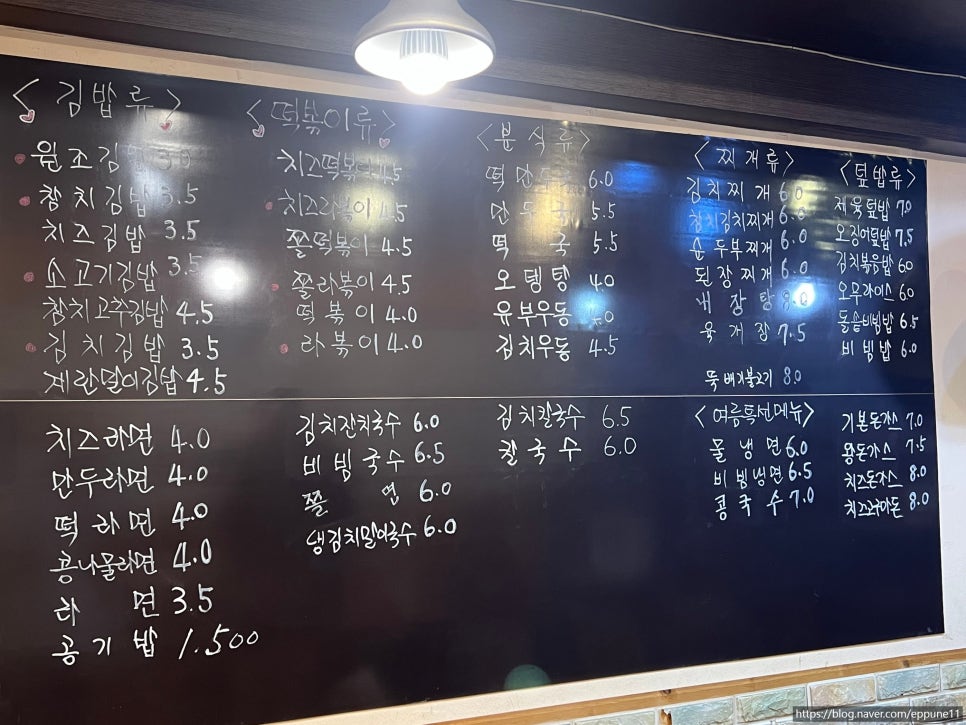 <김밥류>
원조김밥 3.0
참치김밥 3.5
치즈김밥 3.5
소고기김밥 3.5
참치고추김밥 4.5
김치김밥 3.5
계란말이김밥 4.5
<떡볶이류>
치즈떡볶이 4.5
치즈라볶이 4.5
쫄떡볶이 4.5
쫄라볶이 4.5
떡볶이 4.0
라볶이 4.0
<분식류>
떡만두국 6.0
만두국 5.5
떡국 5.5
오뎅탕 4.0
유부우동 4.0
김치우동 4.5
<찌개류>
김치찌개 6.0
참치김치찌개 6.0
순두부찌개 6.0
된장찌개 6.0
내장탕
육개장 7.5
뚝배기불고기 8.0
<덮밥류>
제육덮밥 7.0
오징어덮밥 7.5
김치볶음밥 6.0
오무라이스 6.0
돌솥비빔밥 6.5
비빔밥 6.0
치즈라면 4.0
만두라면 4.0
떡라면 4.0
콩나물라면 4.0
라면 3.5
공기밥 1.500
김치잔치국수 6.0
비빔국수 6.5
쫄면 6.0
냉김치말이국수 6.0
김치칼국수 6.5
칼국수 6.0
<여름특선메뉴>
물냉면 6.0
비빔냉면 6.5
콩국수 7.0
기본돈가스 7.0
왕돈가스 7.5
치즈돈가스 8.0
8.0
https://blog.naver.com/eppune11